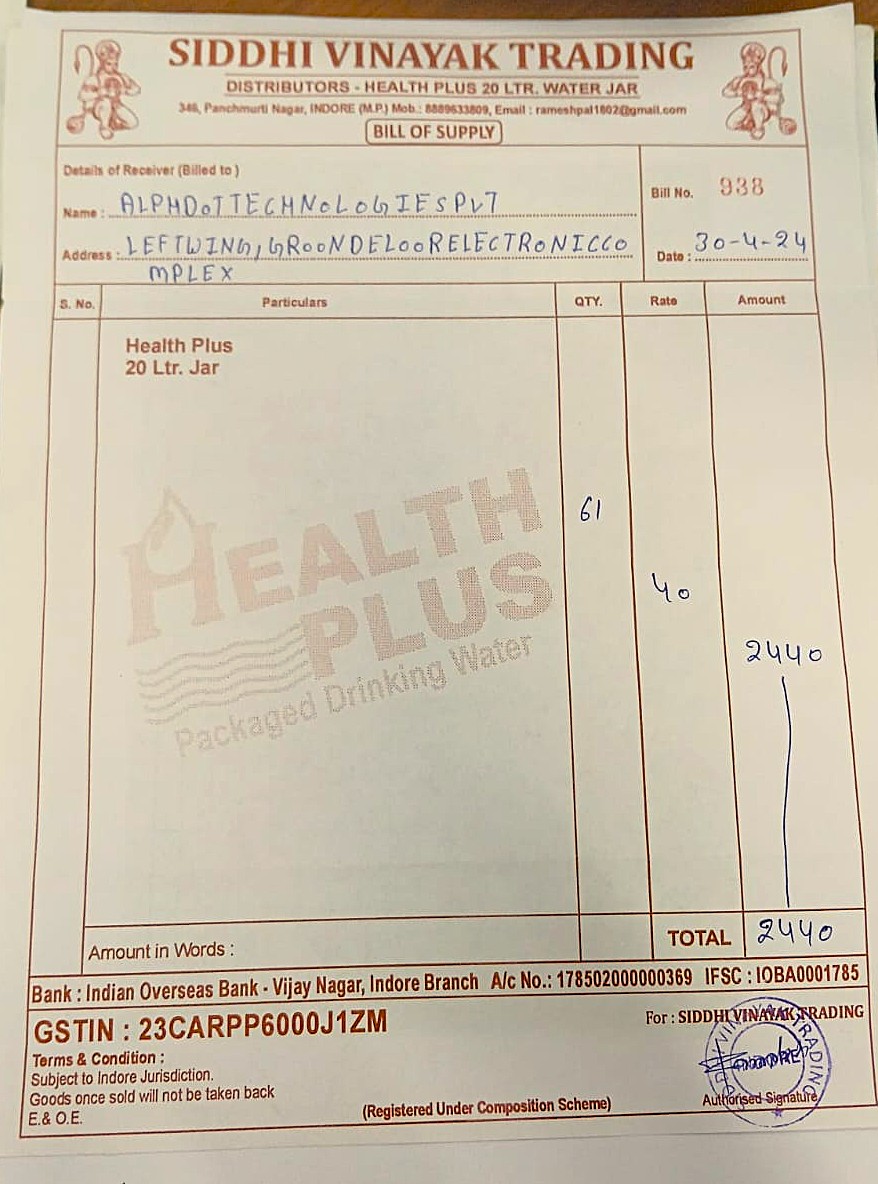 SIDDHI VINAYAK TRADING
DISTRIBUTORS - HEALTH PLUS 20 LTR. WATER JAR
346, Panchmurti Nagar, INDORE (M.P.) Mob.: 8889633809, Email : rameshpal1802@gmail.com
BILL OF SUPPLY
Details of Receiver (Billed to )
Name : ALPHDOTTECHNOLOGIESPVT
Address : LEFTWING, GROONDFLOORELECTRONICCO
MPLEX
Bill No. 938
Date : 30-4-24
S. No. Particulars QTY. Rate Amount
Health Plus
20 Ltr. Jar
61
40
2440
HEALTH
PLUS
Packaged Drinking Water
Amount in Words :
TOTAL 2440
Bank : Indian Overseas Bank - Vijay Nagar, Indore Branch A/c No.: 178502000000369 IFSC : IOBA0001785
GSTIN : 23CARPP6000J1ZM
For : SIDDHI VINAYAK TRADING
Terms & Condition :
Subject to Indore Jurisdiction.
Goods once sold will not be taken back
E.& O.E.
(Registered Under Composition Scheme)
Authorised Signature